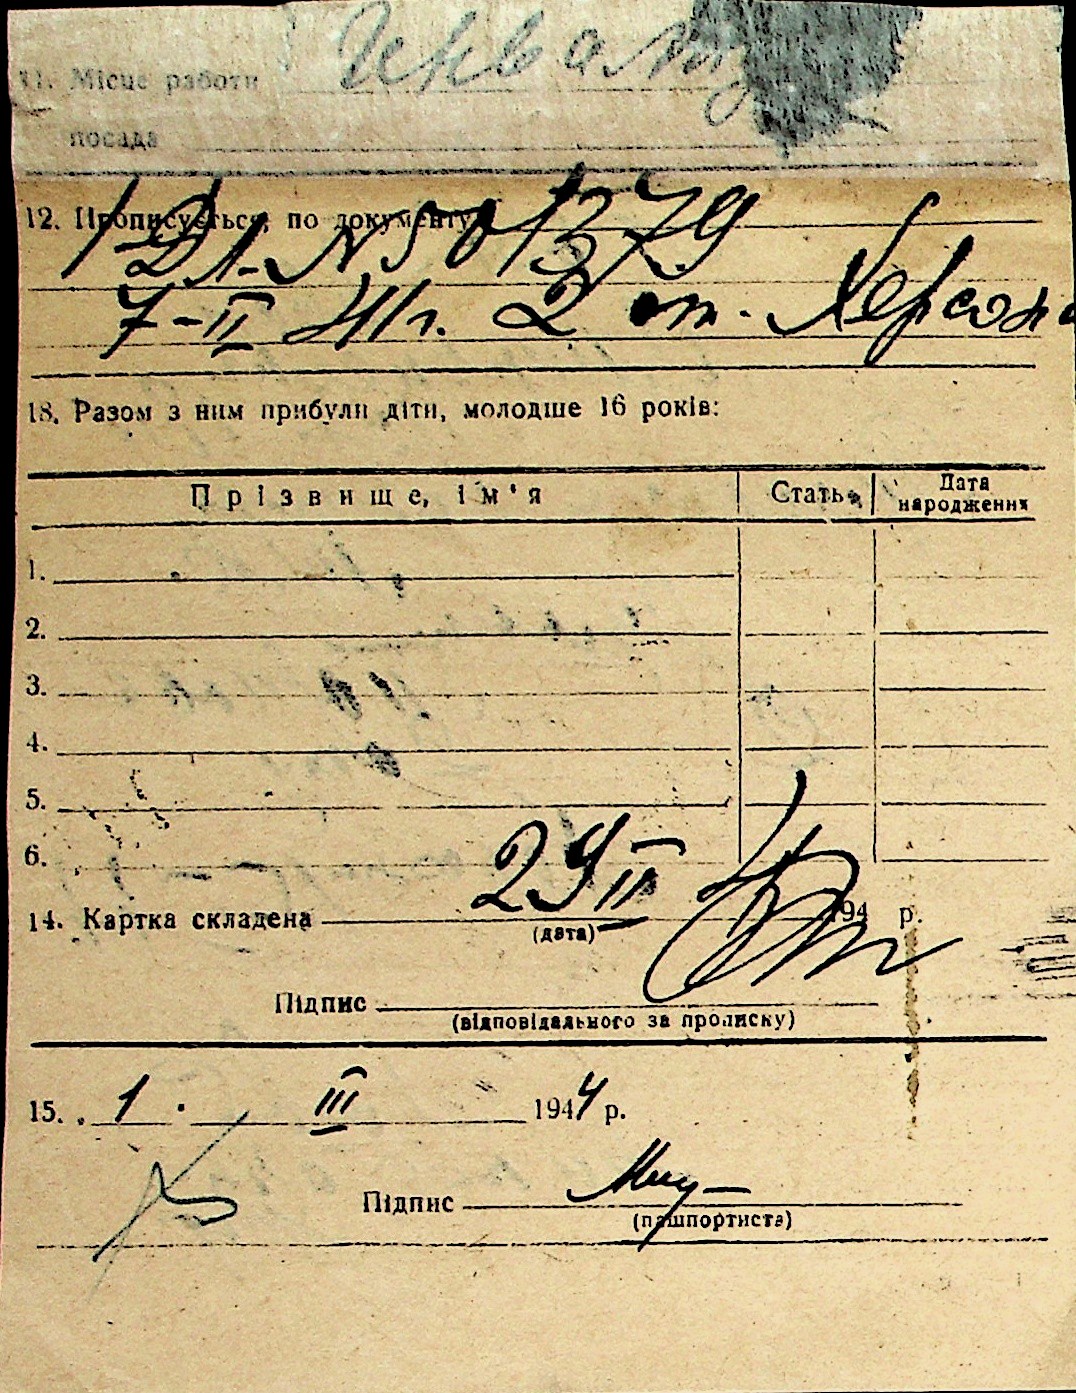 11. Місце работи
посада
12. Прописується, по документу
7-II 41 г. 2 от. Херсона
13. Разом з ним прибули діти, молодше 16 років:
Прізвище, ім'я Стать Дата народження
1.
2.
3.
4.
5.
6.
14. Картка складена 29 II 194 р.
(дата)
Підпис
(відповідального за прописку)
15. 1. III 1944 р.
Підпис
(пашпортиста)